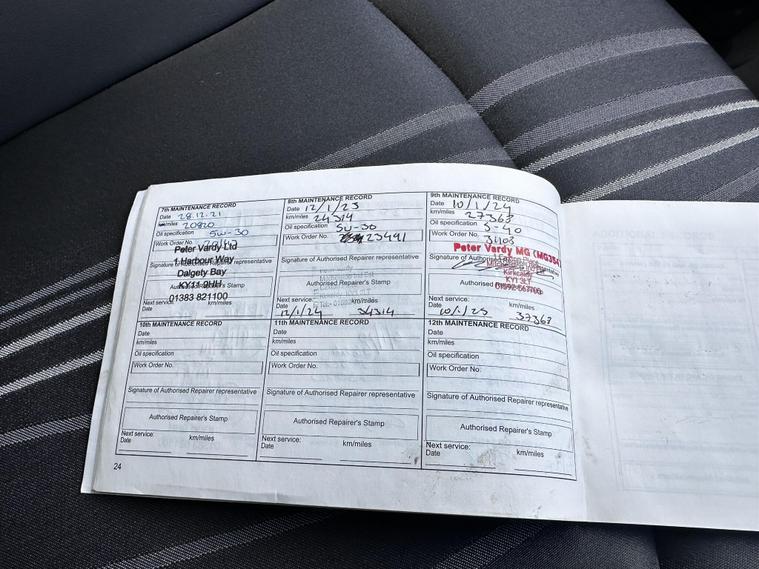 7th MAINTENANCE RECORD
Date 28.12.21
km/miles 20820
Oil specification 5w-30
Work Order No.
Peter Vardy Ltd
1 Harbour Way
Dalgety Bay
KY11 9HH
01383 821100
Signature of Authorised Repairer representative
Authorised Repairer's Stamp
Next service: km/miles
Date
8th MAINTENANCE RECORD
Date 12/1/23
km/miles 24314
Oil specification 5w-30
Work Order No. 23491
Signature of Authorised Repairer representative
Authorised Repairer's Stamp
Next service: km/miles
Date 12/1/24 34314
9th MAINTENANCE RECORD
Date 10/1/24
km/miles 27368
Oil specification 5-40
Work Order No. 31103
Peter Vardy MG (MG354)
Signature of Authorised Repairer representative
Kirkcaldy
KY1 3LT
Authorised Repairer's Stamp
01592 667700
Next service: km/miles
Date 10/1/25 37368
10th MAINTENANCE RECORD
Date
km/miles
Oil specification
Work Order No.
Signature of Authorised Repairer representative
Authorised Repairer's Stamp
Next service: km/miles
Date
11th MAINTENANCE RECORD
Date
km/miles
Oil specification
Work Order No.
Signature of Authorised Repairer representative
Authorised Repairer's Stamp
Next service: km/miles
Date
12th MAINTENANCE RECORD
Date
km/miles
Oil specification
Work Order No.
Signature of Authorised Repairer representative
Authorised Repairer's Stamp
Next service: km/miles
Date
24